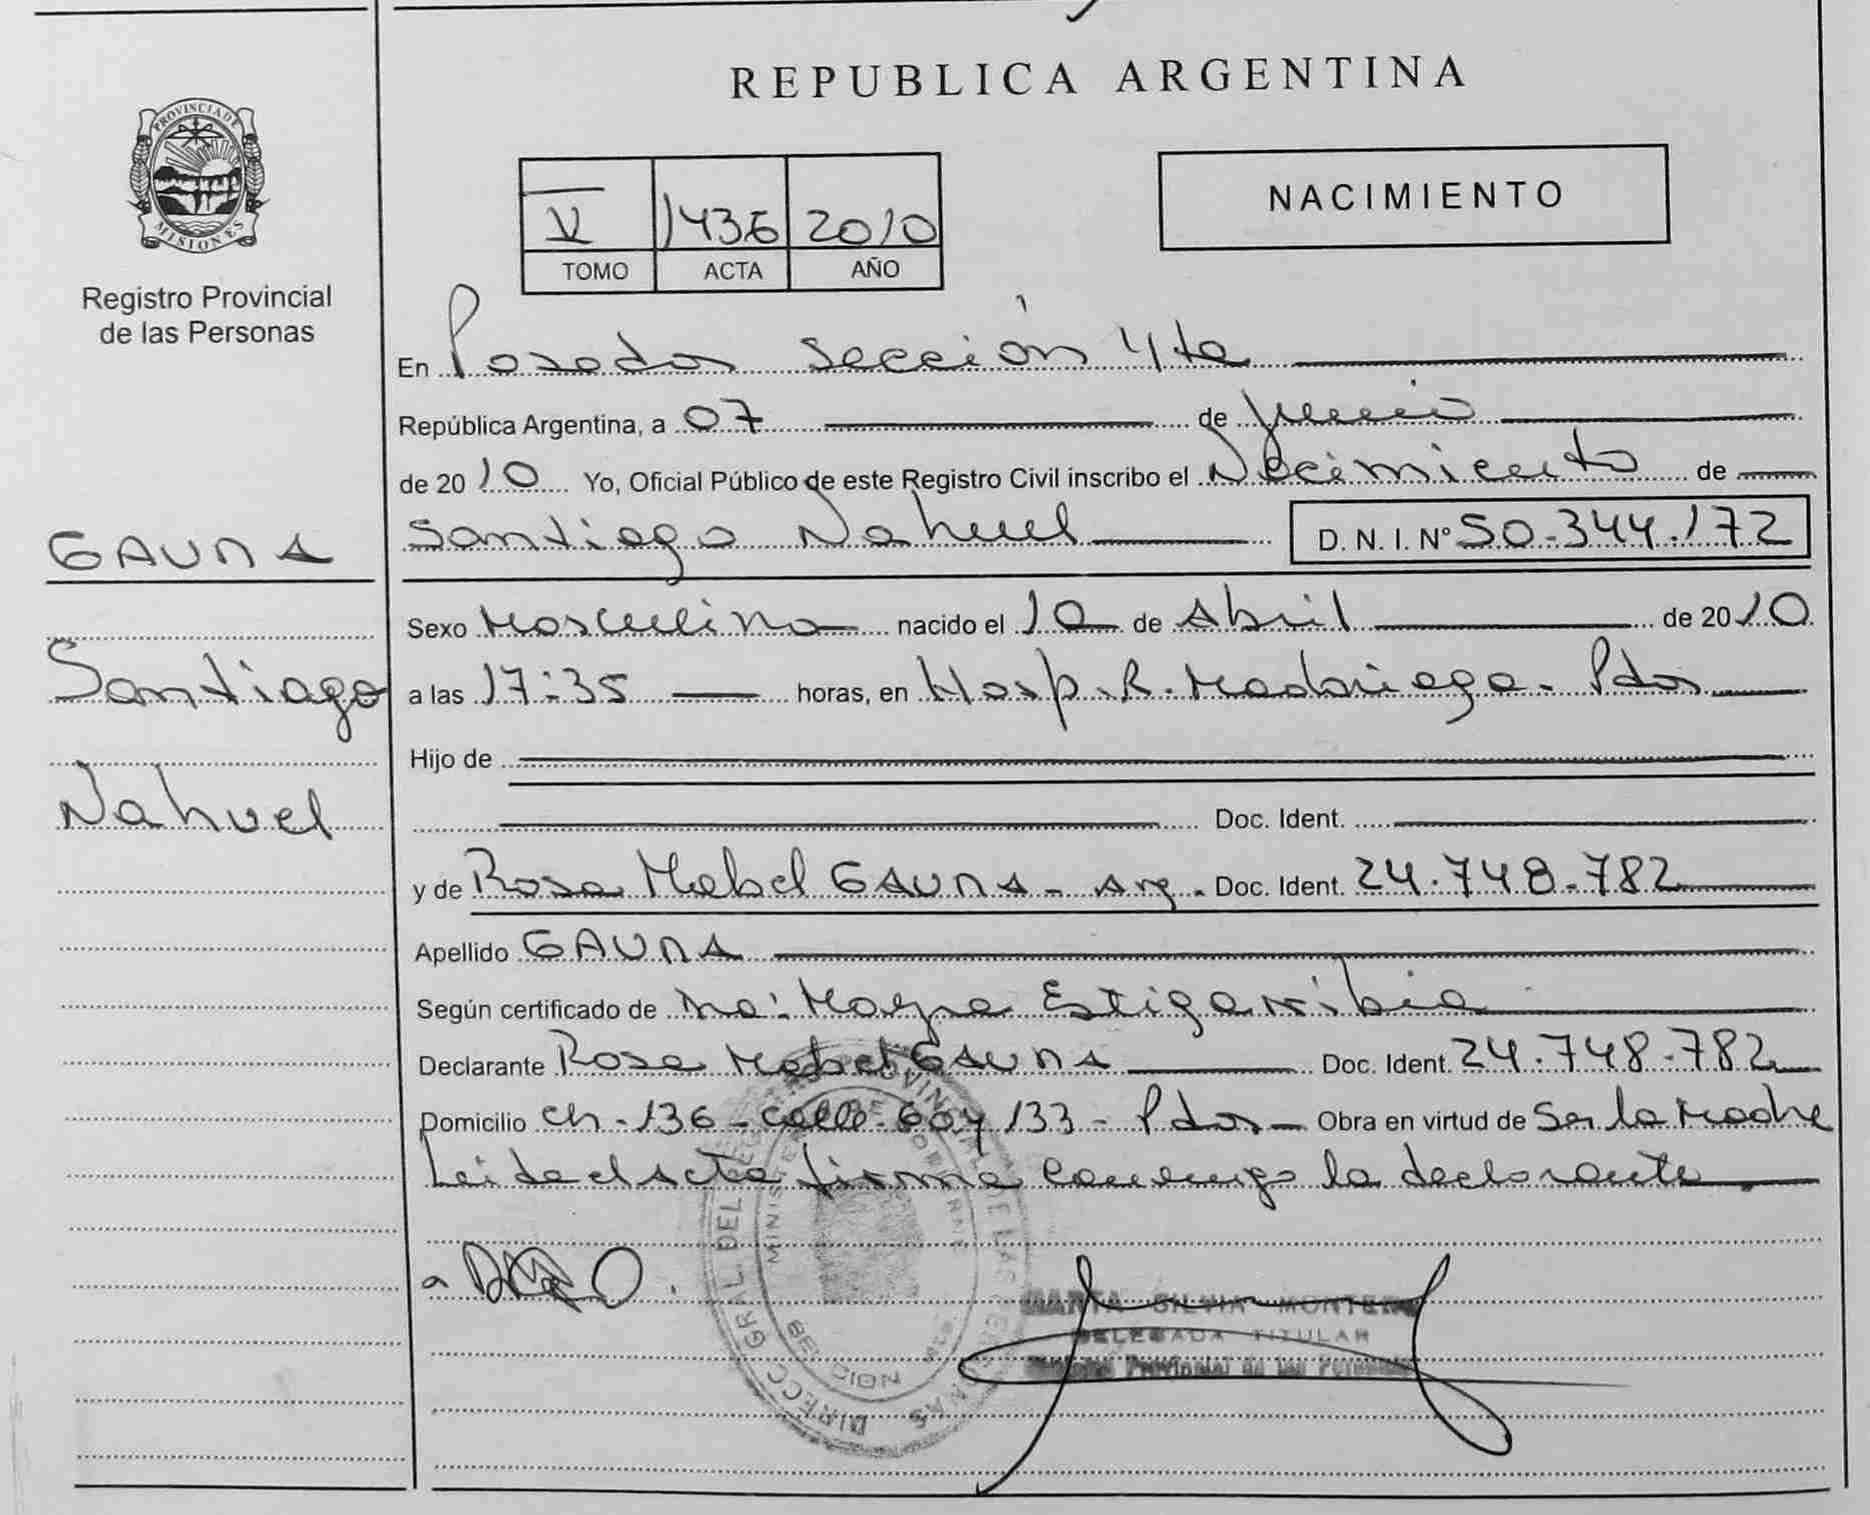 REPUBLICA ARGENTINA
PROVINCIA DE
MISIONES
Registro Provincial
de las Personas
V 1436 2010
TOMO ACTA AÑO
NACIMIENTO
En Posadas Sección 4ta
República Argentina, a 07 de Junio
de 2010 Yo, Oficial Público de este Registro Civil inscribo el Nacimiento de
Santiago Nahuel D.N.I. Nº 50.344.172
GAUNA
Santiago
Nahuel
Sexo Masculino nacido el 10 de Abril de 2010
a las 17:35 horas, en Hosp. R. Madariaga - Pdas
Hijo de
Doc. Ident.
y de Rosa Mabel GAUNA - Arg. Doc. Ident. 24.748.782
Apellido GAUNA
Según certificado de Estigarribia
Declarante Rosa Mabel GAUNA Doc. Ident. 24.748.782
Domicilio Ch - 136 - calle 133 - Pdas Obra en virtud de Ser la Madre
Leida el Acta firma conmigo la declarante.
MARTA SILVIA MONTERO
DELEGADA TITULAR
Registro Provincial de las Personas